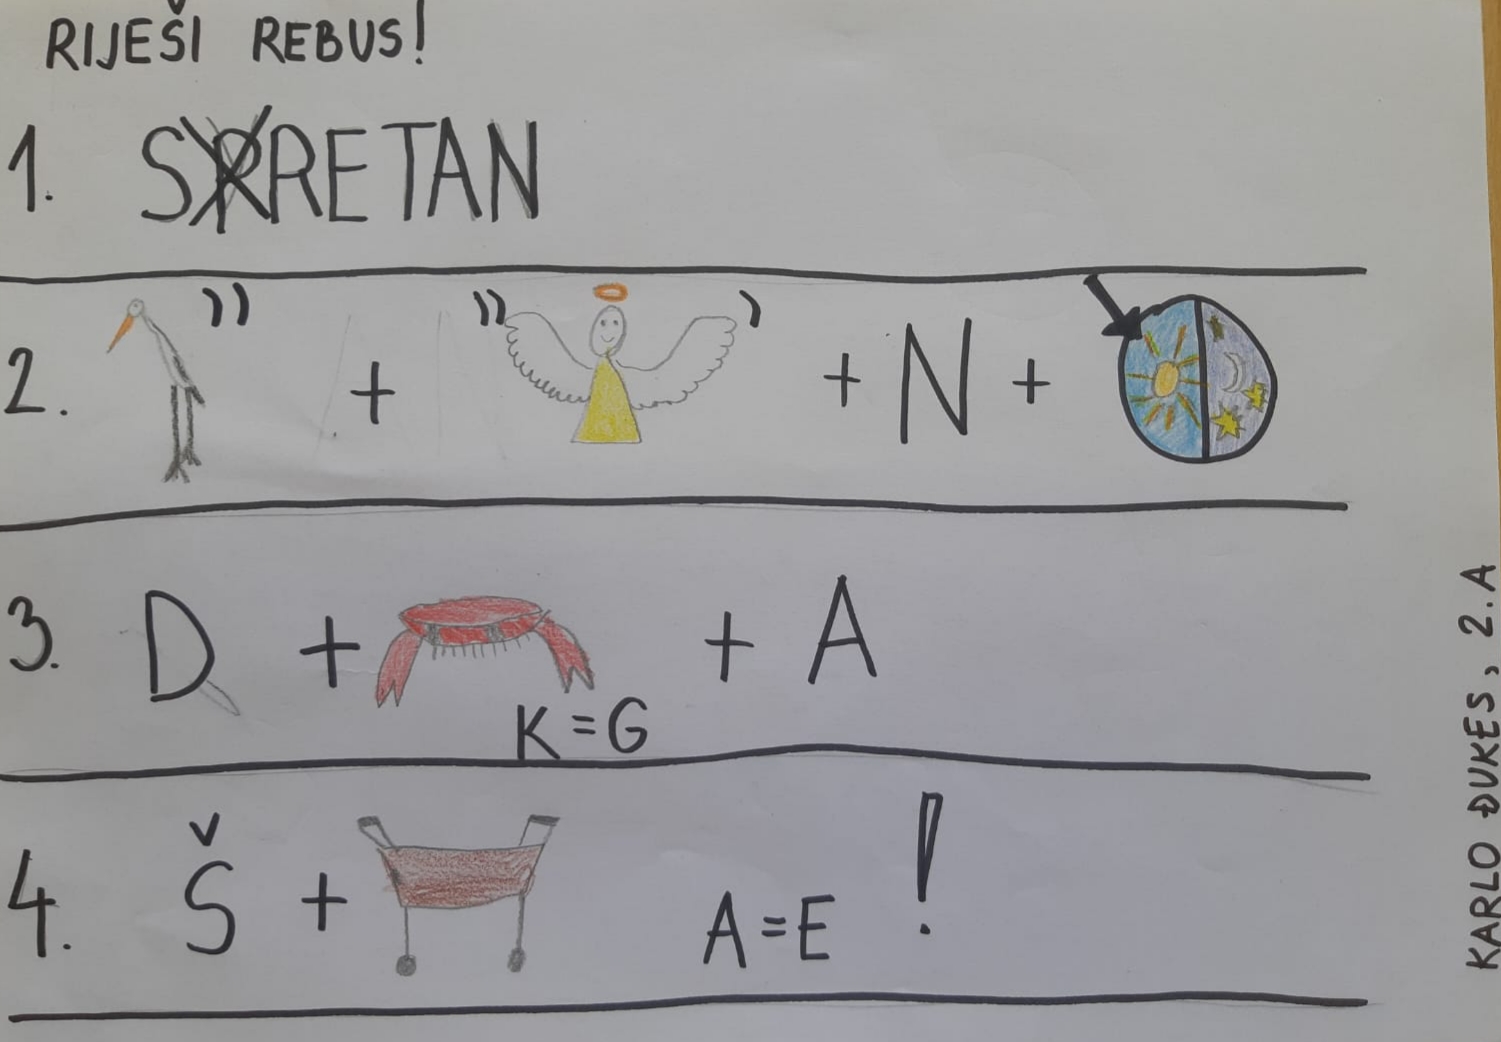 RIJEŠI REBUS!
1. SRRETAN
2. '' + '' ' + N +
3. D + + A
K=G
4. Š + A=E !
KARLO ĐUKES, 2.A